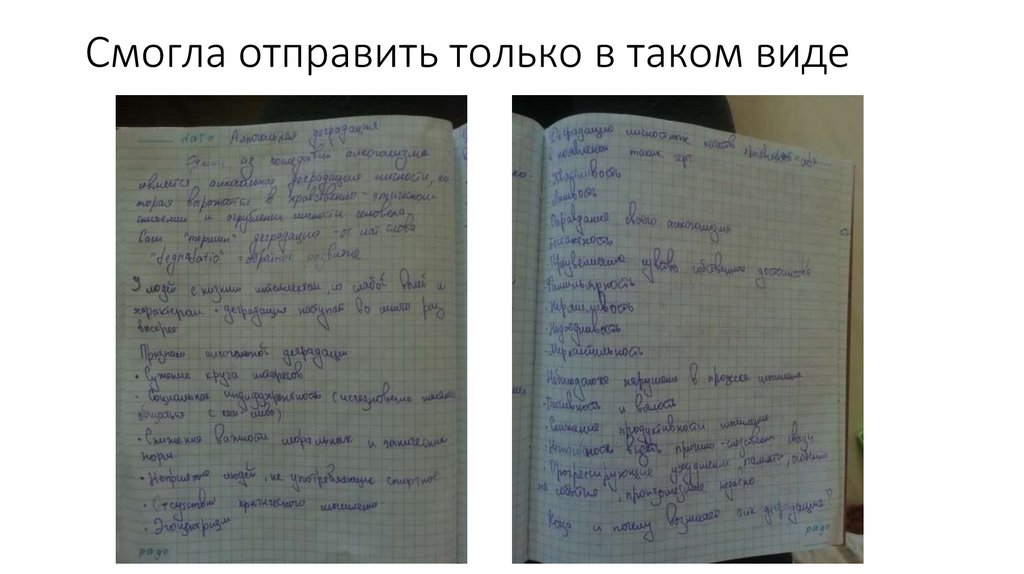 Смогла отправить только в таком виде
date Алкогольная деградация
из алкоголизма
является алкогольная деградация личности, ко
торая выражается в нравственно-этическом
снижении и огрублении личности человека.
Сам "термин" деградация - от лат слова
обратное развитие
У людей с низким интеллектом, со слабой волей и
характером деградация наступает во много раз
быстрее.
Признаки алкогольной деградации
• Сужение круга интересов
• Социальная (исчезновение
общаться с кем либо)
• Снижение важности моральных и этических
норм.
• Неприятие людей, не употребляющих спиртное
• Отсутствие критического мышления
• Эгоцентризм
page
Деградацию личностных качеств
появлении таких черт
• Хвастливость
• Лживость
• Оправдание своего алкоголизма
• Преувеличение чувство собственного достоинства
Фамильярность
• Неряшливость
• Надоедливость
• Меркантильность
нарушение в процессе мышления
• Пассивность и вялость
• Снижение продуктивности мышления
видеть причино-следствен связи
• Прогрессирующие ухудшение памяти, особенно
на события, произошедшие недавно
и почему возникает деградация?
page